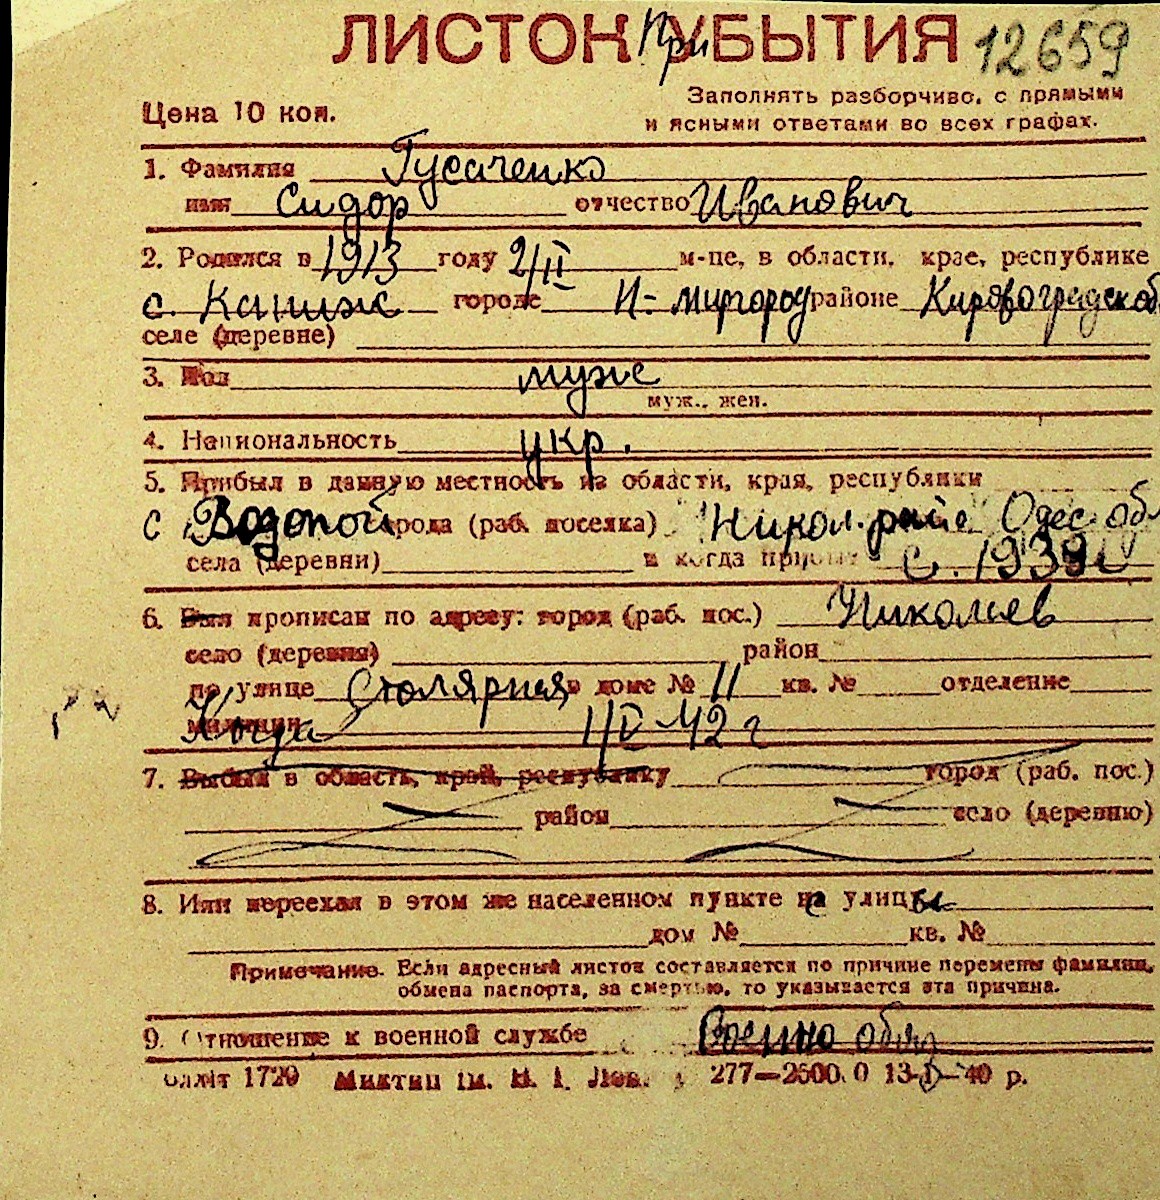 ЛИСТОК При УБЫТИЯ 12659
Цена 10 коп.
Заполнять разборчиво, с прямыми
и ясными ответами во всех графах.
1. Фамилия Гусаченко
имя Сидор отчество Иванович
2. Родился в 1913 году 2/II м-це, в области, крае, республике
с. Каниж городе Н-Миргород районе Кировоградской
селе (деревне)
3. Пол муж
муж., жен.
4. Национальность укр.
5. Прибыл в данную местность из области, края, республики
С Водопой города (раб. поселка) Никол. райо Одес. обл
села (деревни) и когда прибыл С. 1939 г
6. Был прописан по адресу: город (раб. пос.) Николаев
село (деревня) район
по улице Столярная в доме № 11 кв. № отделение
милиции Когда 1/V 42 г
7. Выбыл в область, край, республику город (раб. пос.)
район село (деревню)
8. Или переехал в этом же населенном пункте с улицы
дом № кв. №
Примечание. Если адресный листок составляется по причине перемены фамилии,
обмена паспорта, за смертью, то указывается эта причина.
9. Отношение к военной службе Военно обяз
1720 277—2500.0 13-I-40 р.